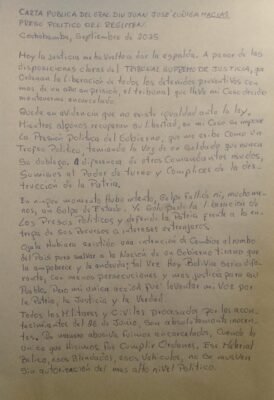 CARTA PUBLICA DEL GRAL. DIV. JUAN JOSE ZUÑIGA MACIAS,
PRESO POLITICO DEL REGIMEN.
Cochabamba, Septiembre de 2025
Hoy la justicia me ha vuelto a dar la espalda. A pesar de las
disposiciones claras del TRIBUNAL SUPREMO DE JUSTICIA, que
Ordenan la liberación de todos los detenidos preventivos con
mas de un año en prisión, el tribunal que lleva mi Caso decide
mantenerme encarcelado.
Queda en evidencia que no existe igualdad ante la ley.
Mientras algunos recuperan su libertad, en mi Caso se impone
La Presión Politica del Gobierno, que me exhibe Como un
Trofeo Politico, temiendo la Voz de un Soldado que nunca
Se doblegó. A diferencia de otros Comandantes
Sumisos al Poder de turno y Complices de la des-
trucción de la Patria.
En ningun momento Hubo intento, Golpe Fallido ni, mucho me-
nos, un Golpe de Estado. Yo la liberación de
Los Presos Politicos y defendí la Patria frente a la en-
trega de sus Recursos a intereses extranjeros.
Ojala hubiera existido una intención de Cambiar el rumbo
del Pais para salvar a la Nación de un Gobierno tirano que
la empobrece y la endeuda. Tal Vez Hoy Bolivia seria dife-
rente, con menos persecuciones y mas justicia para su
Pueblo. Pero mi unica acción fue levantar mi Voz por
la Patria, la Justicia y la Verdad.
Todos los Militares y Civiles procesados por los acon-
tecimientos del 26 de Junio, son absolutamente inocen-
tes. De manera abusiva fuimos encarcelados, Cuando lo
unico que hicimos fue Cumplir Ordenes. Ese Material
Belico, esos Blindados, esos Vehiculos, no se mueven
Sin autorización del mas alto nivel Politico.